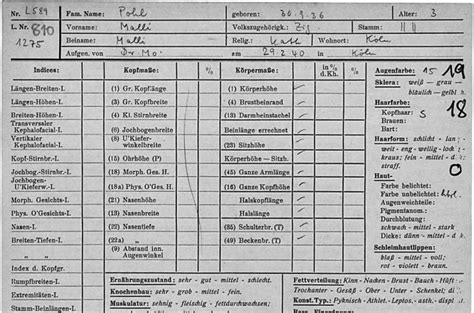 Nr. L589 Fam. Name: Pohl geboren: 30.9.36 Alter: 3
L. Nr. 810 Vorname: Malli Volkszugehörigk.: Zig. Stamm: " "
1275 Beiname: Malli Relig.: Kath. Wohnort: Köln
Aufgen. von Dr Mo. am 29.2.40 in Köln
Indices: Kopfmaße: % Körpermaße: % d. Kh. Augenfarbe: 15 19
Sklera: weiß – grau –
Längen-Breiten-I. (1) Gr. Kopflänge (1) Körperhöhe bläulich – gelbl.
Längen-Höhen-I. (3) Gr. Kopfbreite (4) Brustbeinrand Haarfarbe: 18
Breiten-Höhen-I. (4) Kl. Stirnbreite (13) Darmbeinstachel Kopfhaar: S
Transversaler Kephalofacial-I. (6) Jochbogenbreite Beinlänge errechnet Brauen:
Bart:
Vertikaler Kephalofacial-I. (8) U'Kiefer-winkelbreite (23) Sitzhöhe Haarform: schlicht - lan
weit - eng - wellig - lock-
Kopf-Stirnbr.-I. (15) Ohrhöhe (P) (9) Schulterhöhe kraus; fein - mittel - d.
straff.
Jochbog.-Stirnbr.-I. (18) Morph. Ges.H. (45) Ganze Armlänge Haut: O
Jochbogen-U'Kieferw.-I. (18a) Phys. O'Ges. H. (16) Ganze Kopfhöhe Farbe belichtet:
Farbe unbelichtet:
Morph. Gesichts-I. (21) Nasenhöhe Halskopflänge Augenweichteile:
Phys. O'Gesichts-I. (13) Nasenbreite Halslänge Pigmentanom.:
Durchblutung:
Nasen-I. (22) Tiefe (35) Schulterbr. (T) schwach - mittel - stark
Breiten-Tiefen-I. (22a) " (49) Beckenbr. (T) Dicke: dünn - mittel - d.
" " (9) Abstand inn. Augenwinkel Schleimhautlippen:
blaß - mittel - voll
Index d. Kopfgr. rot - violett - braun.
Rumpfbreiten-I. Ernährungszustand: sehr - gut - mittel - schlecht. Fettverteilung: Kinn - Nacken - Brust - Bauch - Hüft -
Extremitäten-I. Knochenbau: fein - mittel - grob. Trochanter - Gesäß - Ober - Unter - Schenkel; di-
Stamm-Beinlängen-I. Muskulatur: sehnig - fleischig - fettdurchwachsen; Konst.Typ.: Pyknisch - Athlet. - Leptos. - asth. displ